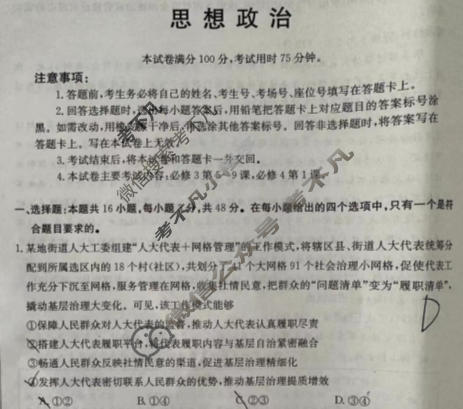 思想政治
本试卷满分100分,考试用时75分钟。
注意事项:
1.答题前,考生务必将自己的姓名、考生号、考场号、座位号填写在答题卡上。
2.回答选择题时,选出每小题答案后,用铅笔把答题卡上对应题目的答案标号涂
黑。如需改动,用橡皮擦干净后,再选涂其他答案标号。回答非选择题时,将答案写在
答题卡上。写在本试卷上无效。
3.考试结束后,将本试卷和答题卡一并交回。
4.本试卷主要考试内容:必修3第5~9课,必修4第1课。
一、选择题:本题共16小题,每小题3分,共48分。在每小题给出的四个选项中,只有一个是符
合题目要求的。
1.某地街道人大工委组建“人大代表+网格管理”工作模式,将辖区县、街道人大代表统筹分
配到所属选区内的18个村(社区),共划分了 个大网格91个社会治理小网格,促使代表工
作充分下沉至网格,服务管理在网格,收集社情民意,把群众的“问题清单”变为“履职清单”,
撬动基层治理大变化。可见,该工作模式能够
①保障人民群众对人大代表的监督,推动人大代表认真履职尽责
②搭建人大代表履职平台,将代表履职内容与基层自治紧密融合
③畅通人民群众反映社情民意的渠道,促进基层治理精细化
④发挥人大代表密切联系人民群众的优势,推动基层治理提质增效
A.①② B.①④ C.②③ D.③④
D
微信搜索考不凡
微信公众号 考不凡